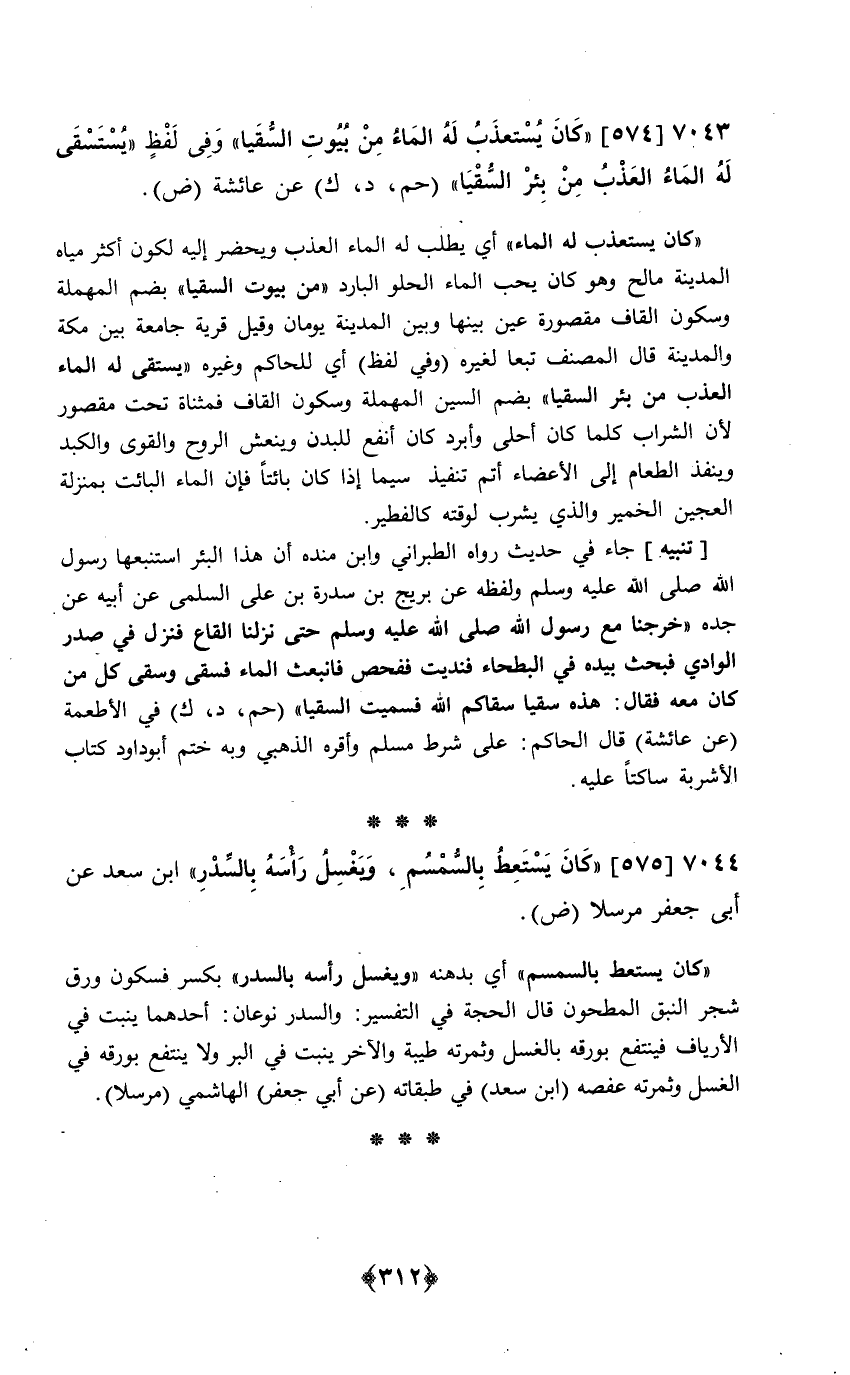 ٧٠٤٣ [٥٧٤] «كَانَ يُسْتعذَبُ لَهُ المَاءُ مِنْ بُيُوتِ السُّقَيا» وَفِى لَفْظٍ «يُسْتَسْقَى
لَهُ المَاءُ العَذْبُ مِنْ بِئرْ السُّقْيَا» (حم، د، ك) عن عائشة (ض).
«كان يستعذب له الماء» أي يطلب له الماء العذب ويحضر إليه لكون أكثر مياه
المدينة مالح وهو كان يحب الماء الحلو البارد «من بيوت السقيا» بضم المهملة
وسكون القاف مقصورة عين بينها وبين المدينة يومان وقيل قرية جامعة بين مكة
والمدينة قال المصنف تبعا لغيره (وفي لفظ) أي للحاكم وغيره «يستقى له الماء
العذب من بئر السقيا» بضم السين المهملة وسكون القاف فمثناة تحت مقصور
لأن الشراب كلما كان أحلى وأبرد كان أنفع للبدن وينعش الروح والقوى والكبد
وينفذ الطعام إلى الأعضاء أتم تنفيذ سيما إذا كان بائتاً فإن الماء البائت بمنزلة
العجين الخمير والذي يشرب لوقته كالفطير.
[ تنبيه ] جاء في حديث رواه الطبراني وابن منده أن هذا البئر استنبعها رسول
الله صلى الله عليه وسلم ولفظه عن بريج بن سدرة بن على السلمى عن أبيه عن
جده «خرجنا مع رسول الله صلى الله عليه وسلم حتى نزلنا القاع فنزل في صدر
الوادي فبحث بيده في البطحاء فنديت ففحص فانبعث الماء فسقى وسقى كل من
كان معه فقال: هذه سقيا سقاكم الله فسميت السقيا» (حم، د، ك) في الأطعمة
(عن عائشة) قال الحاكم: على شرط مسلم وأقره الذهبي وبه ختم أبوداود كتاب
الأشربة ساكتاً عليه.
* * *
٧٠٤٤ [٥٧٥] «كَانَ يَسْتَعِطُ بِالسُّمْسُمِ ، وَيَغْسِلُ رَأْسَهُ بِالسِّدْرِ» ابن سعد عن
أبى جعفر مرسلا (ض).
«كان يستعط بالسمسم» أي بدهنه «ويغسل رأسه بالسدر» بكسر فسكون ورق
شجر النبق المطحون قال الحجة في التفسير: والسدر نوعان: أحدهما ينبت في
الأرياف فينتفع بورقه بالغسل وثمرته طيبة والآخر ينبت في البر ولا ينتفع بورقه في
الغسل وثمرته عفصه (ابن سعد) في طبقاته (عن أبي جعفر) الهاشمي (مرسلا).
* * *
﴿٣١٢﴾